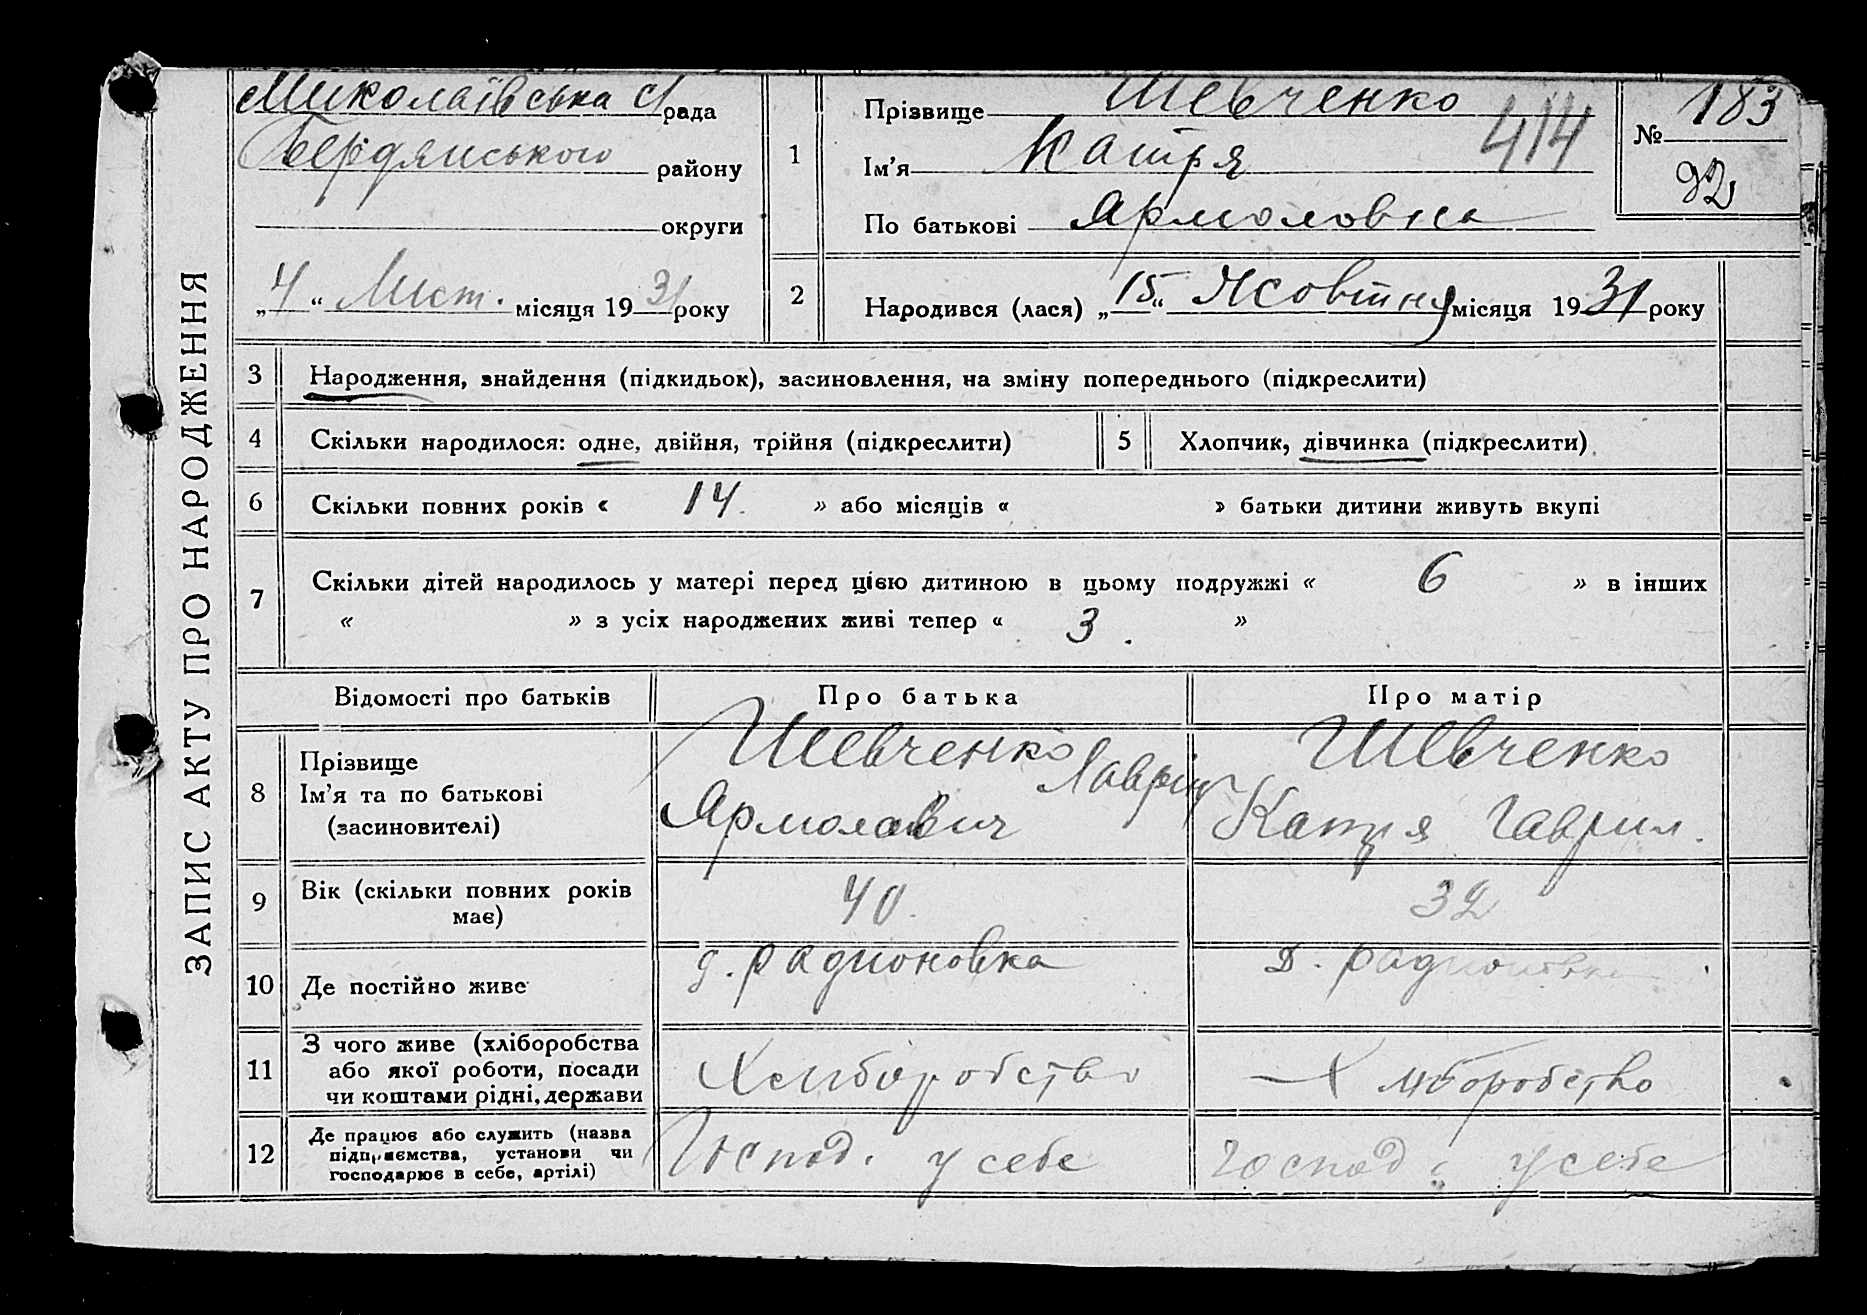 ЗАПИС АКТУ ПРО НАРОДЖЕННЯ
Миколаївська с/рада
Бердянського району
округи
„4“ Лист. місяця 1931 року
1
Прізвище Шевченко
Ім'я Катря
По батькові Ярмоловна
414
№ 183
92
2
Народився (лася) „15“ Жовтня місяця 1931 року
3 Народження, знайдення (підкидьок), засиновлення, на зміну попереднього (підкреслити)
4 Скільки народилося: одне, двійня, трійня (підкреслити)
5 Хлопчик, дівчинка (підкреслити)
6 Скільки повних років « 14 » або місяців « » батьки дитини живуть вкупі
7 Скільки дітей народилось у матері перед цією дитиною в цьому подружжі « 6 » в інших
« » з усіх народжених живі тепер « 3 . »
Відомості про батьків Про батька Про матір
8 Прізвище
Ім'я та по батькові
(засиновителі)
Шевченко
Ярмолавич
Шевченко
Катря Гаврил.
9 Вік (скільки повних років
має)
40
32
10 Де постійно живе
д. Радионовка
д. Радионовка
11 З чого живе (хліборобства
або якої роботи, посади
чи коштами рідні, держави
Хлиборобство
Хлиборобство
12 Де працює або служить (назва
підприємства, установи чи
господарює в себе, артілі)
Господ. у себе
Господ. у себе